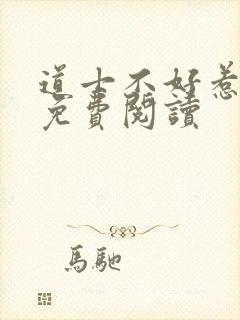 道士不好惹
免費閱讀
馬馳